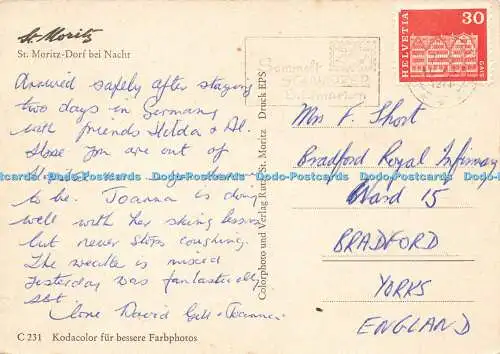 St. Moritz
St. Moritz-Dorf bei Nacht
Arrived safely after staying
two days in Germany
with friends Hilda & Al.
Hope you are out of
to be. Joanna is doing
well with her skiing lessons
but never stops coughing.
The weather is mixed
yesterday was fantastically
Love David Gill + Joanna
C 231 Kodacolor für bessere Farbphotos
Colorphoto und Verlag Furter, St. Moritz Druck EPS
Sammelt
HELVETIA
30
GAIS
Mrs F. Short
Bradford Royal Infirmary
Ward 15
BRADFORD
YORKS
ENGLAND
Dodo-Postcards Dodo-Postcards Dodo-Postcards Dodo-Postcards Dodo-Postcards